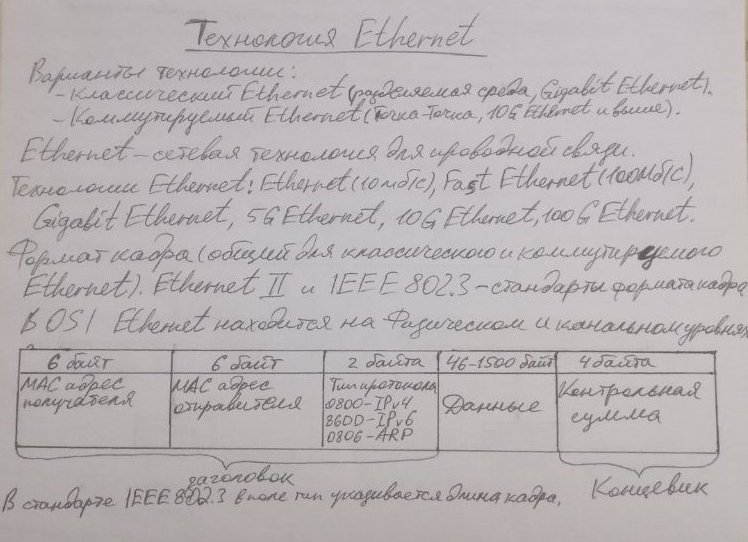 Технология Ethernet
Варианты технологии:
- Классический Ethernet (разделяемая среда, Gigabit Ethernet).
- Коммутируемый Ethernet (Точка-Точка, 10G Ethernet и выше).
Ethernet – сетевая технология для проводной связи.
Технологии Ethernet: Ethernet (10мб/с), Fast Ethernet (100Мб/с),
Gigabit Ethernet, 5G Ethernet, 10G Ethernet, 100G Ethernet.
Формат кадра (общий для классического и коммутируемого
Ethernet). Ethernet II и IEEE 802.3 – стандарты формата кадра
В OSI Ethernet находится на Физическом и канальном уровнях
6 байт 6 байт 2 байта 46-1500 байт 4 байта
MAC адрес MAC адрес Тип протокола Контрольная
получателя отправителя 0800-IPv4 Данные сумма
86DD-IPv6
0806-ARP
заголовок Концевик
В стандарте IEEE 802.3 в поле тип указывается длина кадра.